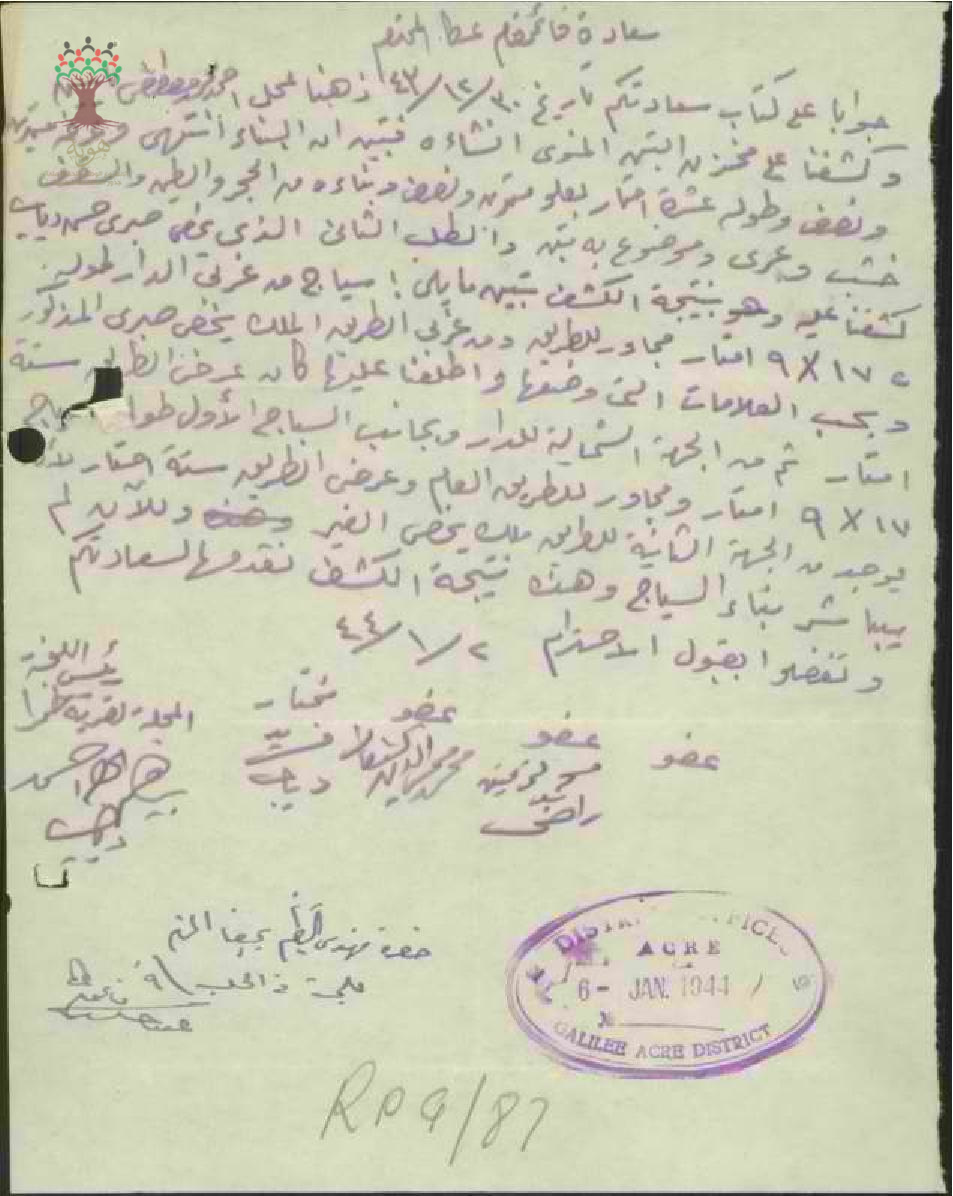 سعادة قائمقام عكا المحترم
جوابا على كتاب سعادتكم تاريخ ٤٣/١٢/٣٠ ذهبنا لمحل احمد محمد مصطفى
وكشفنا على مخزن التبن المنوى انشاءه فتبين ان البناء انتهى
ونصف وطوله عشرة امتار بعلو مترين ونصف وبناءه من الحجر والطين والسقف
خشب وعرى وموضوع به تبن والطلب الثاني الذي يخص صبرى حسن دياب
كشفنا عليه وهو بنتيجة الكشف تبين ما يلي: سياج من غربي الدار طوله
١٧ X ٩ امتار مجاور للطريق ومن غربي الطريق الملك يخص صبرى المذكور
وبحسب العلامات التي وضعها واطلعنا عليها كان عرض الطريق ستة
امتار ثم من الجهة الشمالية للدار وبجانب السياج الأول طول
١٧ X ٩ امتار ومجاور للطريق العام وعرض الطريق ستة امتار
يوجد من الجهة الثانية للطريق ملك يخص الغير وللآن لم
يباشر بناء السياج وهذه نتيجة الكشف نقدمها لسعادتكم
وتفضلوا بقبول الاحترام ٤٤/١/٢
رئيس اللجنة
المحلية لقرية طمرا
مختار
عضو
عضو
عضو
دياب
راضي
حضرة مهندس التنظيم بحيفا المحترم
DISTRICT OFFICE
ACRE
6- JAN. 1944
GALILEE ACRE DISTRICT
RPG/87